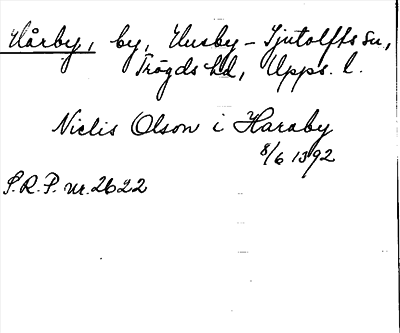 Hårby, by, Husby-Sjutolfts sn,
Trögds hd, Upps. l.
Niclis Olson i Haraby
8/6 1392
S.R.P. nr. 2622